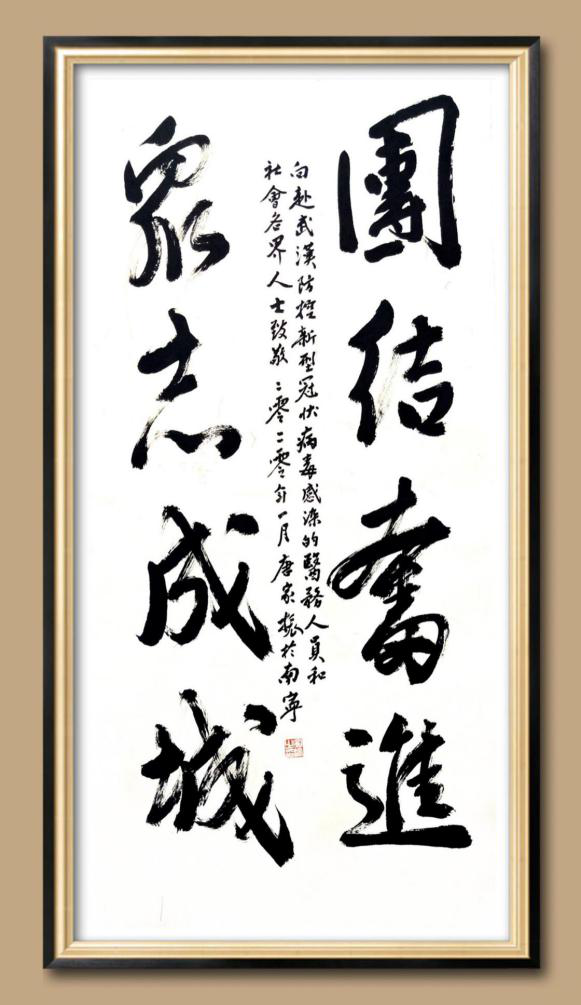 團结奮進
向赴武漢防控新型冠状病毒感染的醫務人員和
社會各界人士致敬 二零二零年一月唐家振於南寧
眾志成城